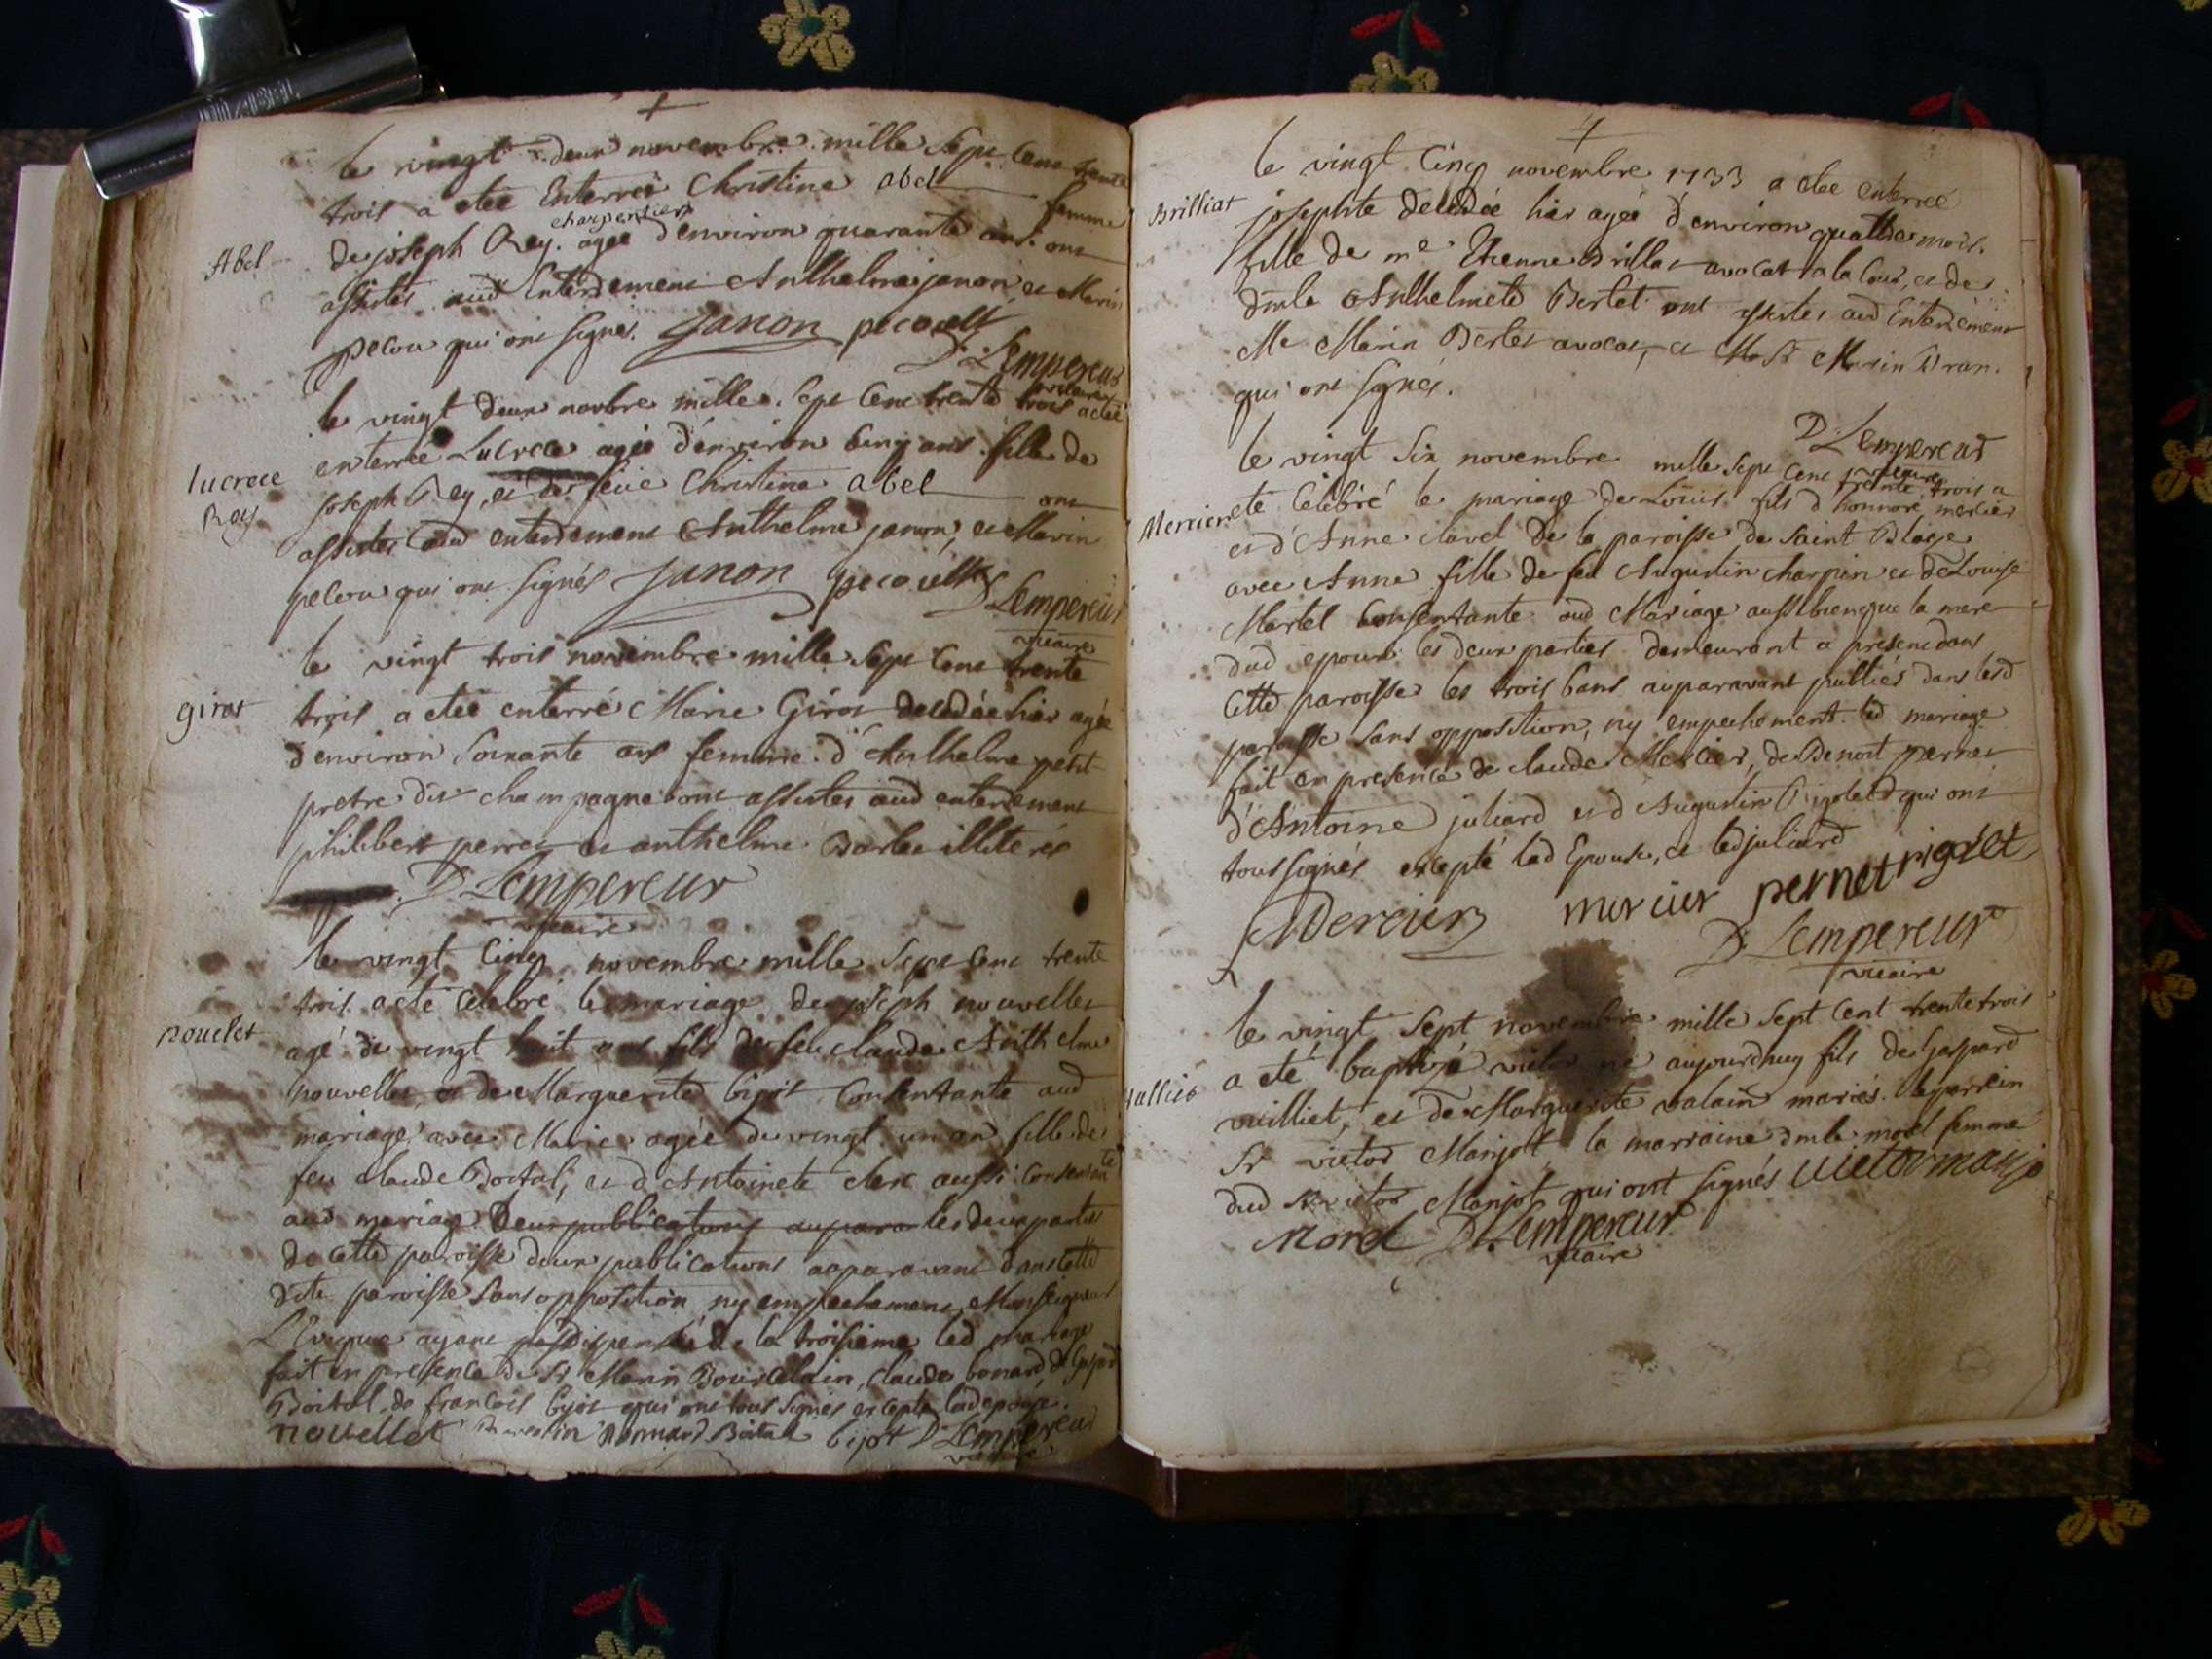 le vingt deux novembre mille sept cent trente
trois a eteé Enterreé Christine abel femme
charpentier
de joseph Rey. ageé d'environ quarante ans. ont
Abel
assistés aud Enterrement Anthelme janon et Marin
pecou qui ont signes. Janon pecouelt
D. Lempereur
vicaire
le vingt deux novbre mille sept cent trente trois a eteé
enterreé Lucrece ageé d'environ cinq ans fille de
lucrece
Rey
joseph Rey, et de feüe Christine abel ont
assistes aud enterrement Anthelme janon, et Marin
pecou qui ont signés Janon pecouelt
D Lempereur
vicaire
le vingt trois novembre mille sept cent trente
girot
trois a eteé enterré Marie Girot decedeé hier ageé
d'environ soixante ans femme d'Anthelme petit
pretre dit champagne ont assistes aud enterrement
philibert perret et anthelme Barbe illiterés
D Lempereur
vicaire
le vingt cinq novembre mille sept cent trente
trois a eté celebré le mariage de joseph nouvellet
nouelet
agé de vingt huit ans fils de feu claude Anthelme
nouvellet, et de Marguerite bijot consentante aud
mariage, avec Marie ageé de vingt un an fille de
feu claude Boital, et d'Antoinete clerc aussi consentante
aud mariage Deux publications aupara les deux parties
de cette paroisse deux publications auparavant dans cette
dite paroisse sans opposition ny empechement, Monseigneur
L'Eveque ayant dispensé de la troisieme led mariage
fait en presence de Sr Marin Bourdin, claude bonard, de Gaspard
Boital, de francois bijot qui ont tous signés excepté lad epouse.
nouellet Bonnard Boital bijot D Lempereur
vicaire
le vingt cinq novembre 1733 a eteé enterreé
Brilliat
josephte decedeé hier ageé d'environ quattre mois.
fille de me Etienne Brillat avocat a la cour, et de
dmle Anthelmete Berlet ont assistes aud Enterrement
Me Marin Berlet avocat, et Sr Marin Dran.
qui ont signés.
D Lempereur
vicaire
le vingt six novembre mille sept cent trente trois a
Mercier
eté Celebré le mariage de Louis fils d'honnoré mercier
et d'Anne clavel de la paroisse de saint Blaise
avec Anne fille de feu Augustin charpin et de Louise
Martel consentante aud Mariage aussi bien que la mere
dud epoux les deux parties demeurant a present dans
cette paroisse les trois bans auparavant publiés dans lesd
paroisse sans opposition, ny empechement. led mariage
fait en presence de claude Mercier, de Benoit pernet
d'Antoine juliard et d'Augustin Rigolet qui ont
tous signés excepté lad Epouse, et led juliard
Mercier mercier pernet rigolet
D Lempereur
vicaire
le vingt sept novembre mille sept cent trente trois
a eté baptisé victor né aujourdhuy fils de gaspard
vuilliet, et de Marguerite valain mariés. le parrein
Sr victor Manjot la marraine dmle morel femme
dud Sr victor Manjot qui ont signés victor manjo
Morel D Lempereur
vicaire